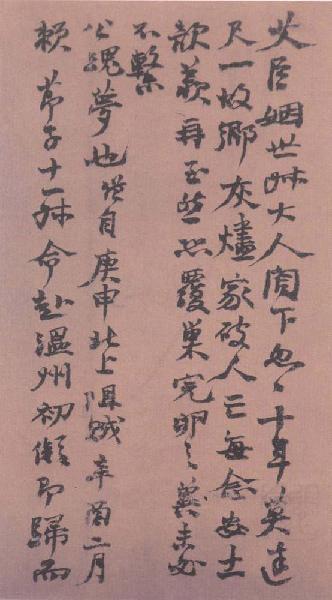 臣姻世叔大人閣下忽忽十年莫達
尺一故鄉灰燼家破人亡每念安土
歆羨再至然覆巢完卵之冀未必
不繫
公魂夢也自庚申北上阻賊辛酉二月
賴節子十一叔命赴溫州初擬即歸而